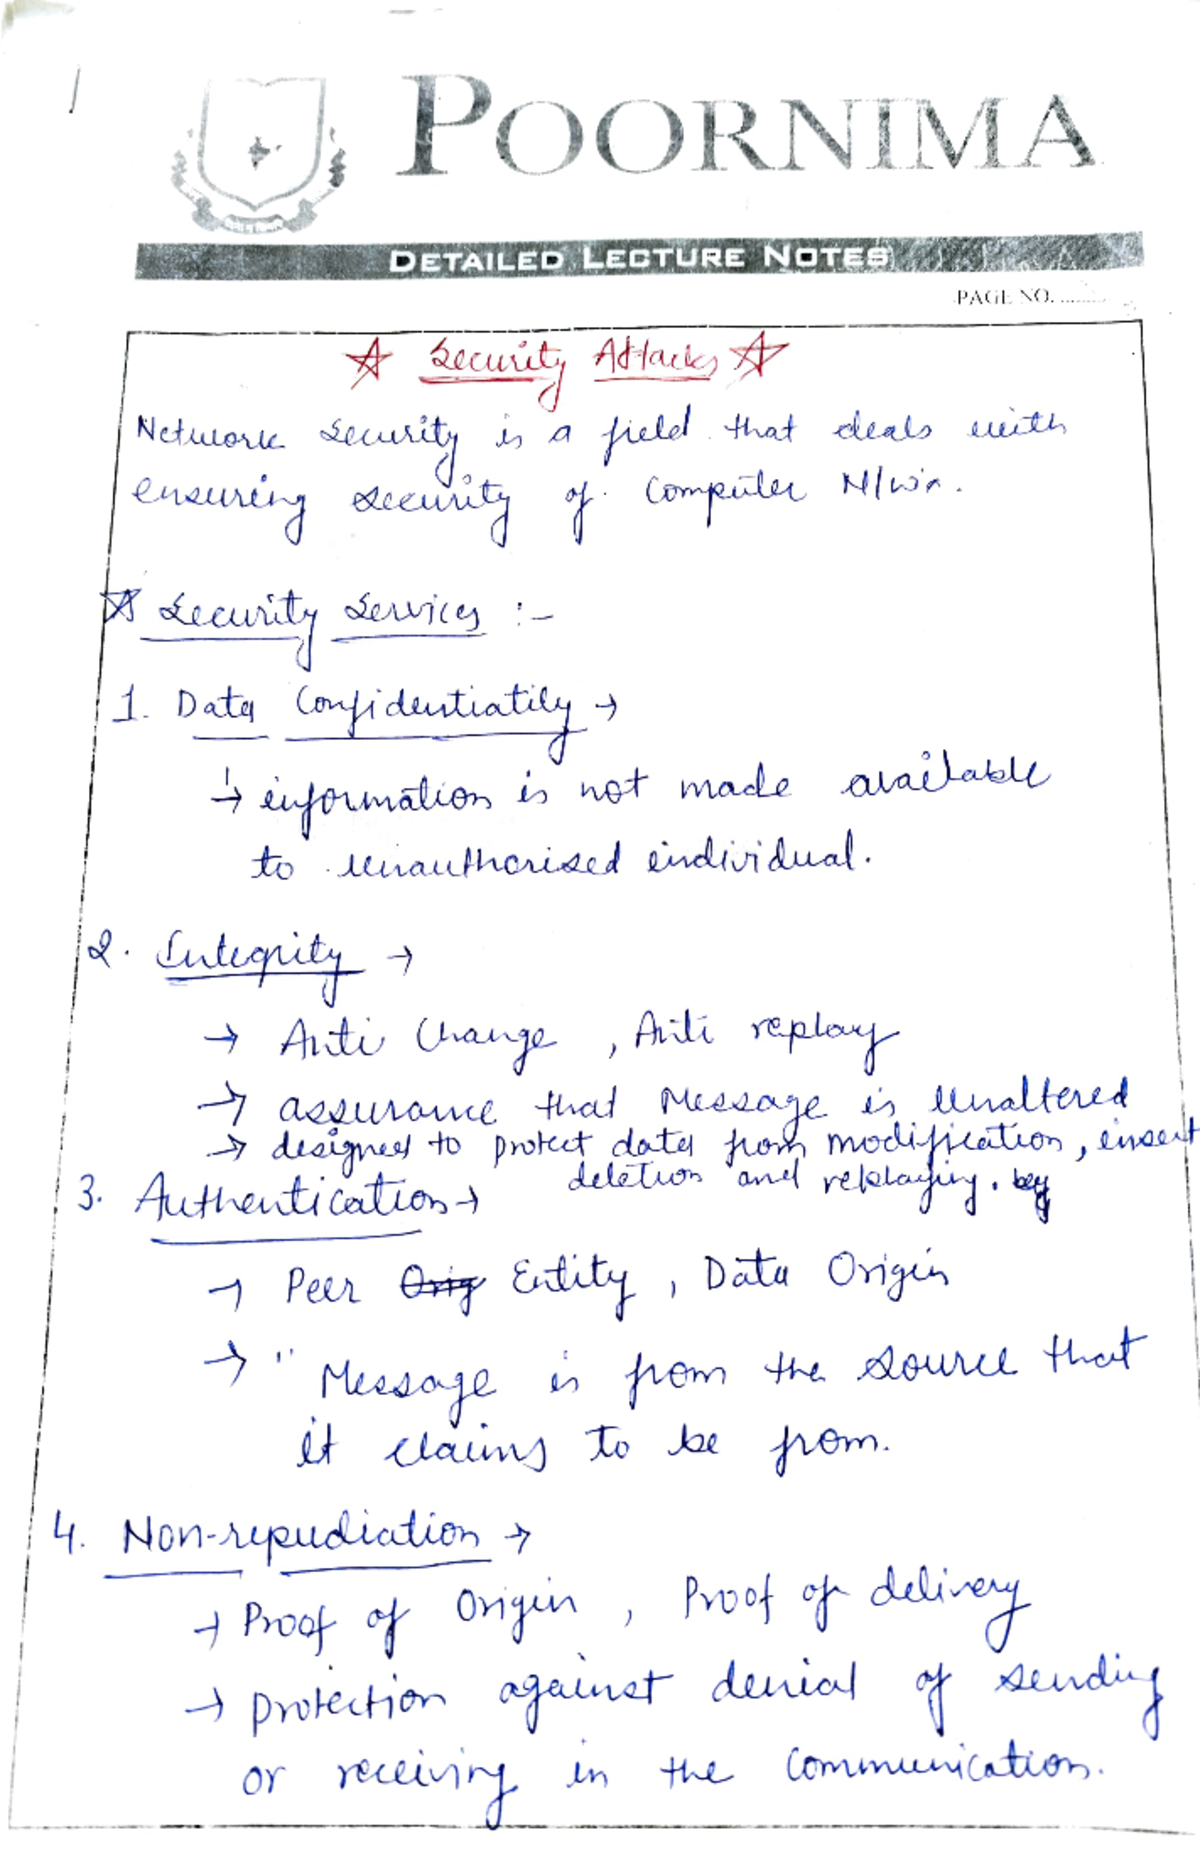 POORNIMA
DETAILED LECTURE NOTES
PAGE NO. ..........
☆ Security Attacks ☆
Network Security is a field that deals with
ensuring security of Computer N/w's.
☆ Security Services :-
1. Data Confidentiatily →
↳ information is not made available
to unauthorised individual.
2. Integrity →
→ Anti Change , Anti replay
→ assurance that Message is Unaltered
→ designed to protect data from modification, insert
deletion and replaying. by
3. Authentication →
→ Peer Orig Entity , Data Origin
→ " Message is from the source that
it claims to be from.
4. Non-repudiation →
→ Proof of Origin , Proof of delivery
→ Protection against denial of sending
or receiving in the Communication.